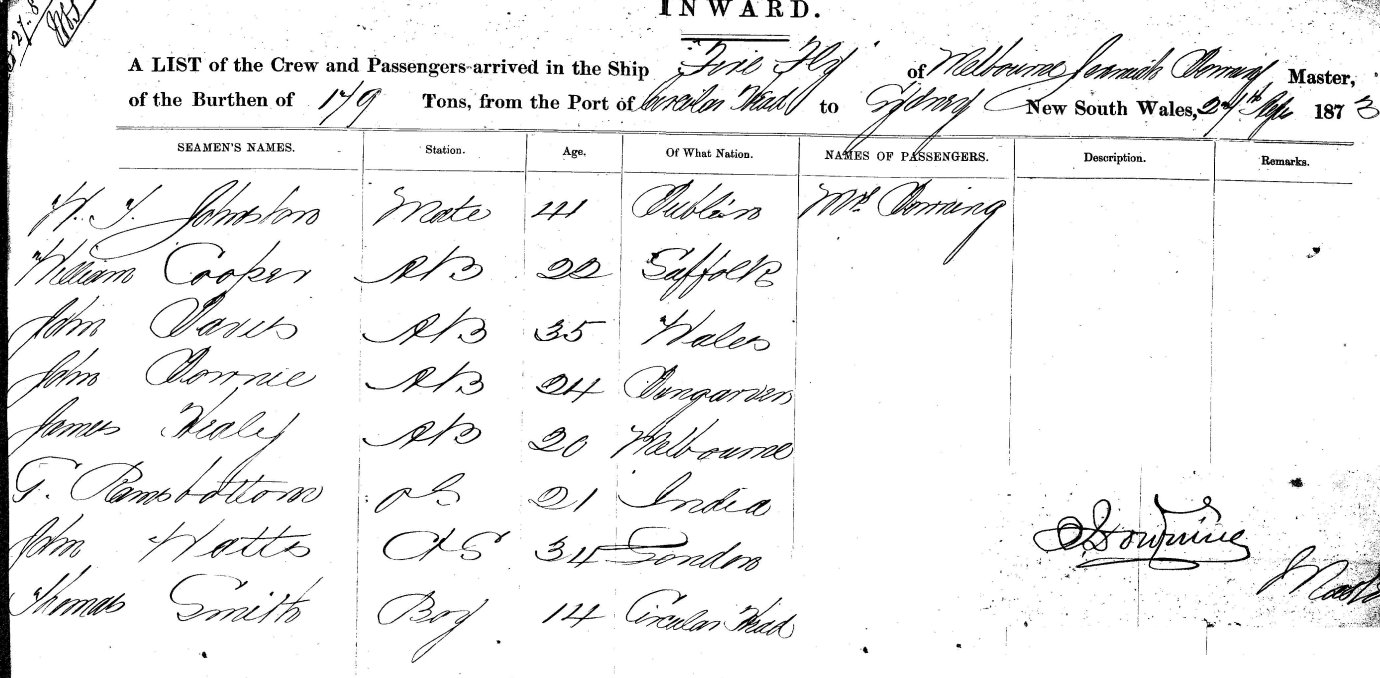 INWARD.
A LIST of the Crew and Passengers arrived in the Ship Fire Fly of Melbourne Downing Master,
of the Burthen of 179 Tons, from the Port of Circular Head to Sydney New South Wales, 1873
SEAMEN'S NAMES. Station. Age. Of What Nation. NAMES OF PASSENGERS. Description. Remarks.
Johnston Mate 41 Dublin Mrs Downing
William Cooper AB 22 Suffolk
John Davis AB 35 Wales
John Downie AB 24 Dungarven
James Healy AB 20 Melbourne
G. Ramsbottom OS 21 India
John Watts 34 London
Thomas Smith Boy 14 Circular Head
Downing